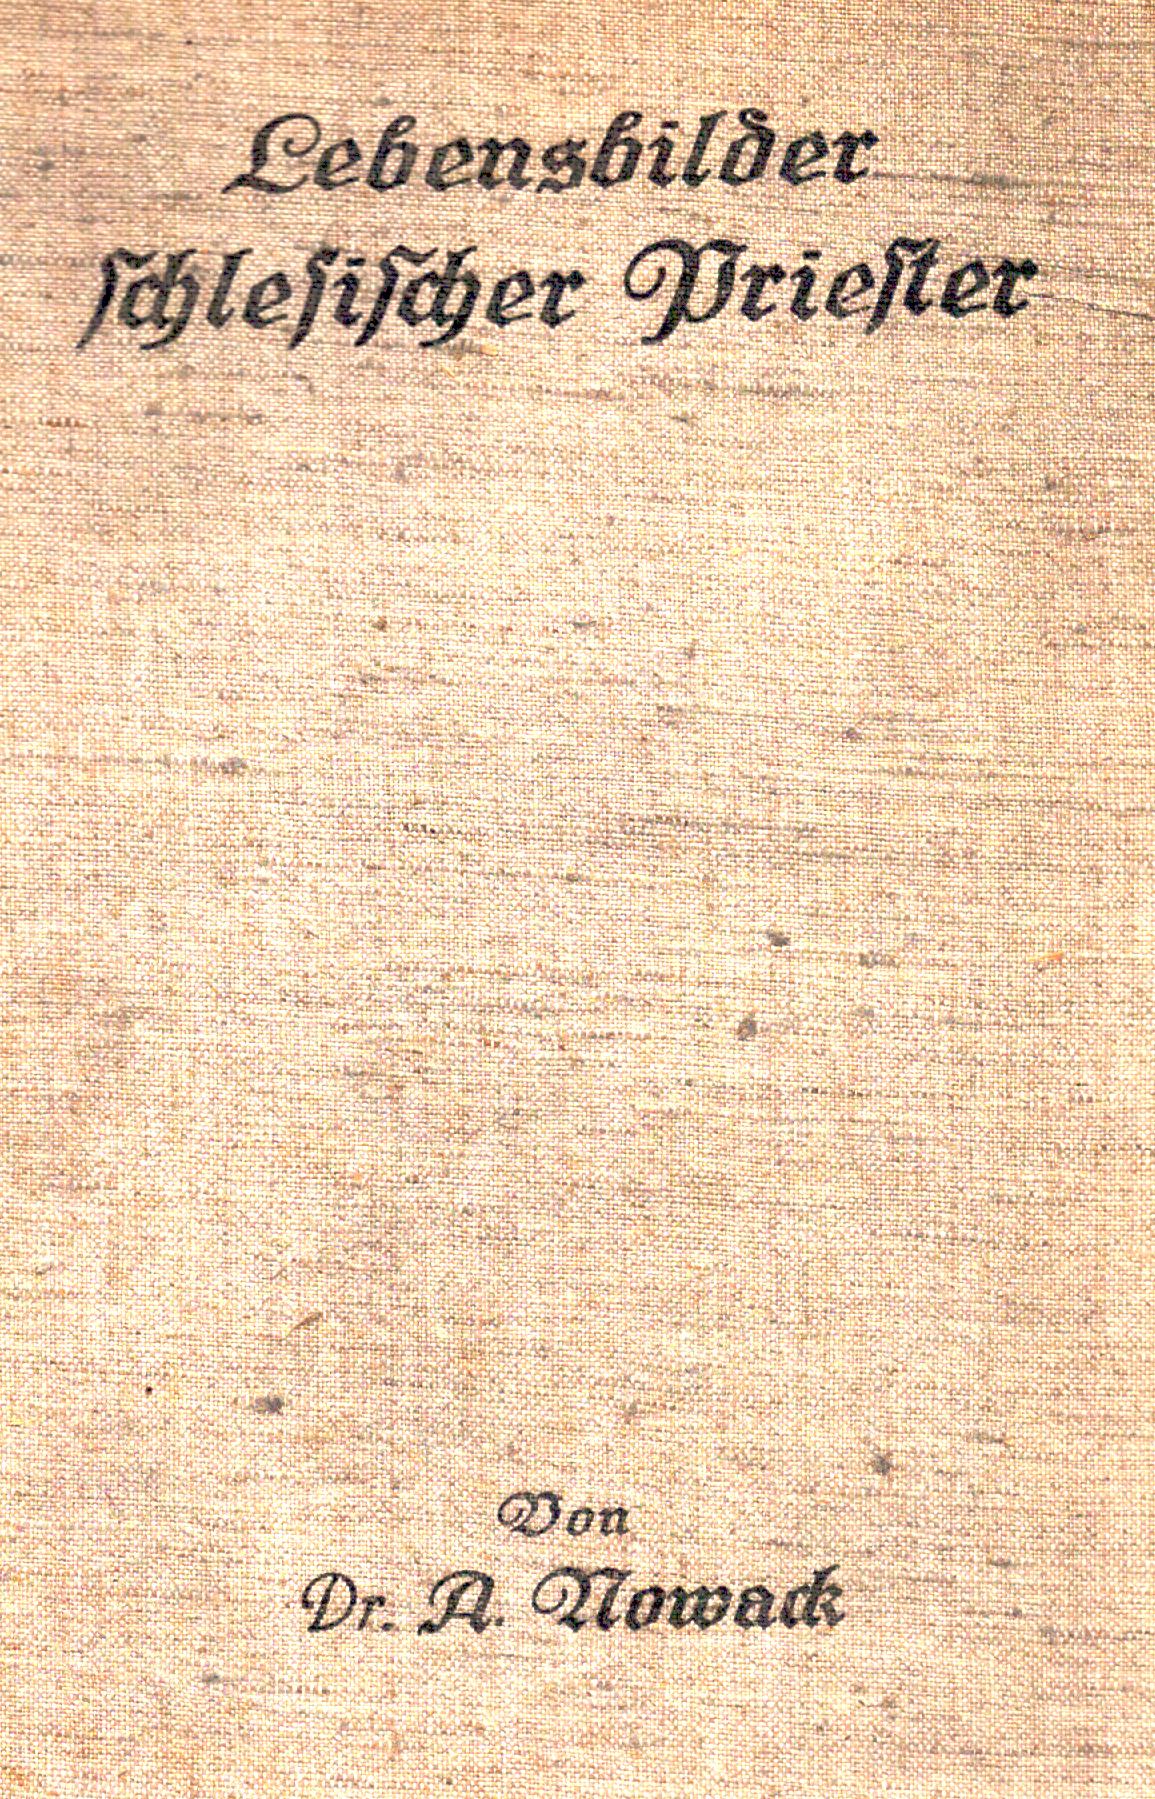 Lebensbilder
schlesischer Priester
Von
Dr. A. Nowack